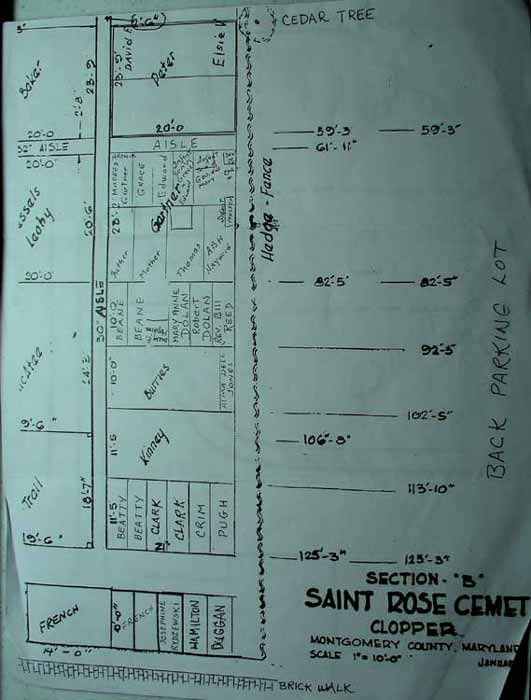 CEDAR TREE
3'
6'-6"
David E
23'-9"
Peter
Elsie V
20'-0
Baker
23'-9
2'-3
20'-0
32" AISLE
20'-0
AISLE
59'-3
59'-3"
61'-11"
Gartner
GRACE
Edward
Gartner
ssels
leahy
20'-6
23'-2
Mother
Thomas
Hedge-Fance
20'-0
30" AISLE
82'-5'
82'-5"
10'-0
BEANE
BEANE
MARY ANNE
DOLAN
Robert
DOLAN
REV. Bill
REED
92'-5"
14'-2
10'-0"
Burress
ALMA DELL
JONES
BACK PARKING LOT
9'-6"
102'-5"
11'-5
Kinney
106'-8"
Trail
18'-7"
11'-5
BEATTY
BEATTY
CLARK
CLARK
CRIM
PUGH
113'-10"
19'-6"
125'-3"
125'-3"
SECTION-"B"
SAINT ROSE CEMET
CLOPPER
MONTGOMERY COUNTY, MARYLAND
SCALE 1"=10'-0"
JANUAR
FRENCH
FRENCH
JOSEPHINE
RYDZEWSKI
HAMILTON
DUGGAN
14'-0"
BRICK WALK